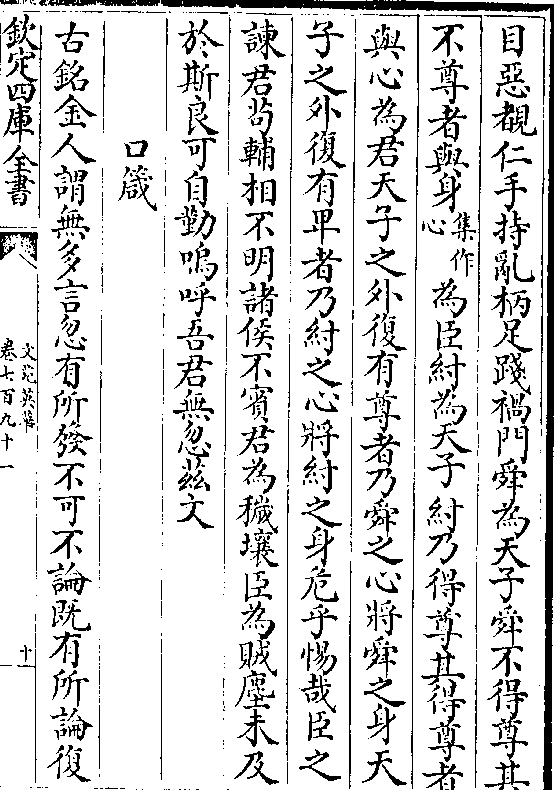 目惡覩仁手持亂柄足踐禍門舜為天子舜不得尊其
不尊者與身集作心為臣紂為天子紂乃得尊其得尊者
與心為君天子之外復有尊者乃舜之心將舜之身天
子之外復有卑者乃紂之心將紂之身危乎惕哉臣之
諫君茍輔相不明諸侯不賓君為穢壤臣為賊塵未及
於斯良可自勤嗚呼吾君無忽茲文
口箴
古銘金人謂無多言忽有所發不可不論既有所論復
欽定四庫全書
文苑英華
卷七百九十一
十一